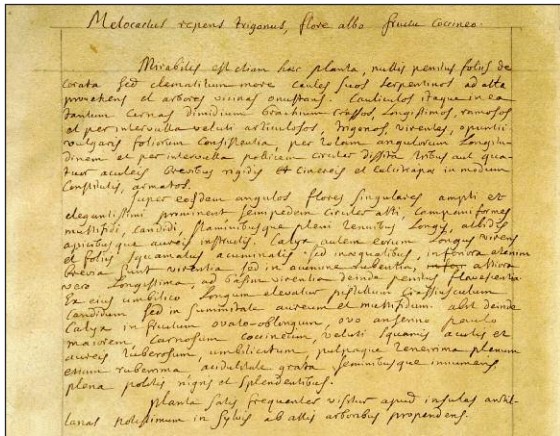 Melocactus repens trigonus, flore albo fructu coccineo.
Mirabilis est etiam haec planta, nullis penitus foliis de
corata sed clematitum more caules suos serpentinos ad alta
provehens et arbores vicinas onustans. Cauliculos itaque in ea
tantum cernas dimidium brachium crassos, longissimos, ramosos
et per intervalla veluti articulosos, trigonos, virentes, opuntii
vulgaris foliorum consistentia, per totam angulorum longitu
dinem et per intervalla pollicem circiter dissita tribus aut qua
tuor aculeis brevibus rigidis et cinereis et calcitrapae in modum
constitutis, armatos.
Super eosdem angulos flores singulares ampli et
elegantissimi prominent, semipedem circiter alti, campaniformes
multifidi, candidi, staminibusque pleni tenuibus longis, albidis
apicibusque aureis instructis. Calyx autem eorum longus virens
et foliis squamatus acuminatis sed inaequalibus, inferiora etenim
brevia sunt virentia sed in acumine rubentia, altiora
vero longissima, ad basim virentia deinde penitus flavescentia
Ex eius umbilico longum elevatur pistillum crassiusculum
candidum sed in summitate aureum et multifidum. abit deinde
Calyx in fructum ovato-oblongum, ovo anserino paulo
maiorem, carnosum coccineum, veluti squamis acutis et
aureis tuberosum, umbilicatum, pulpaque tenerrima plenum
etiam ruberrima, aciditate grata seminibusque innumeris
plena politis nigris et splendentibus.
Planta satis frequenter visitur apud insulas antil-
lanas potissimum in sylvis ab altis arboribus propendens.